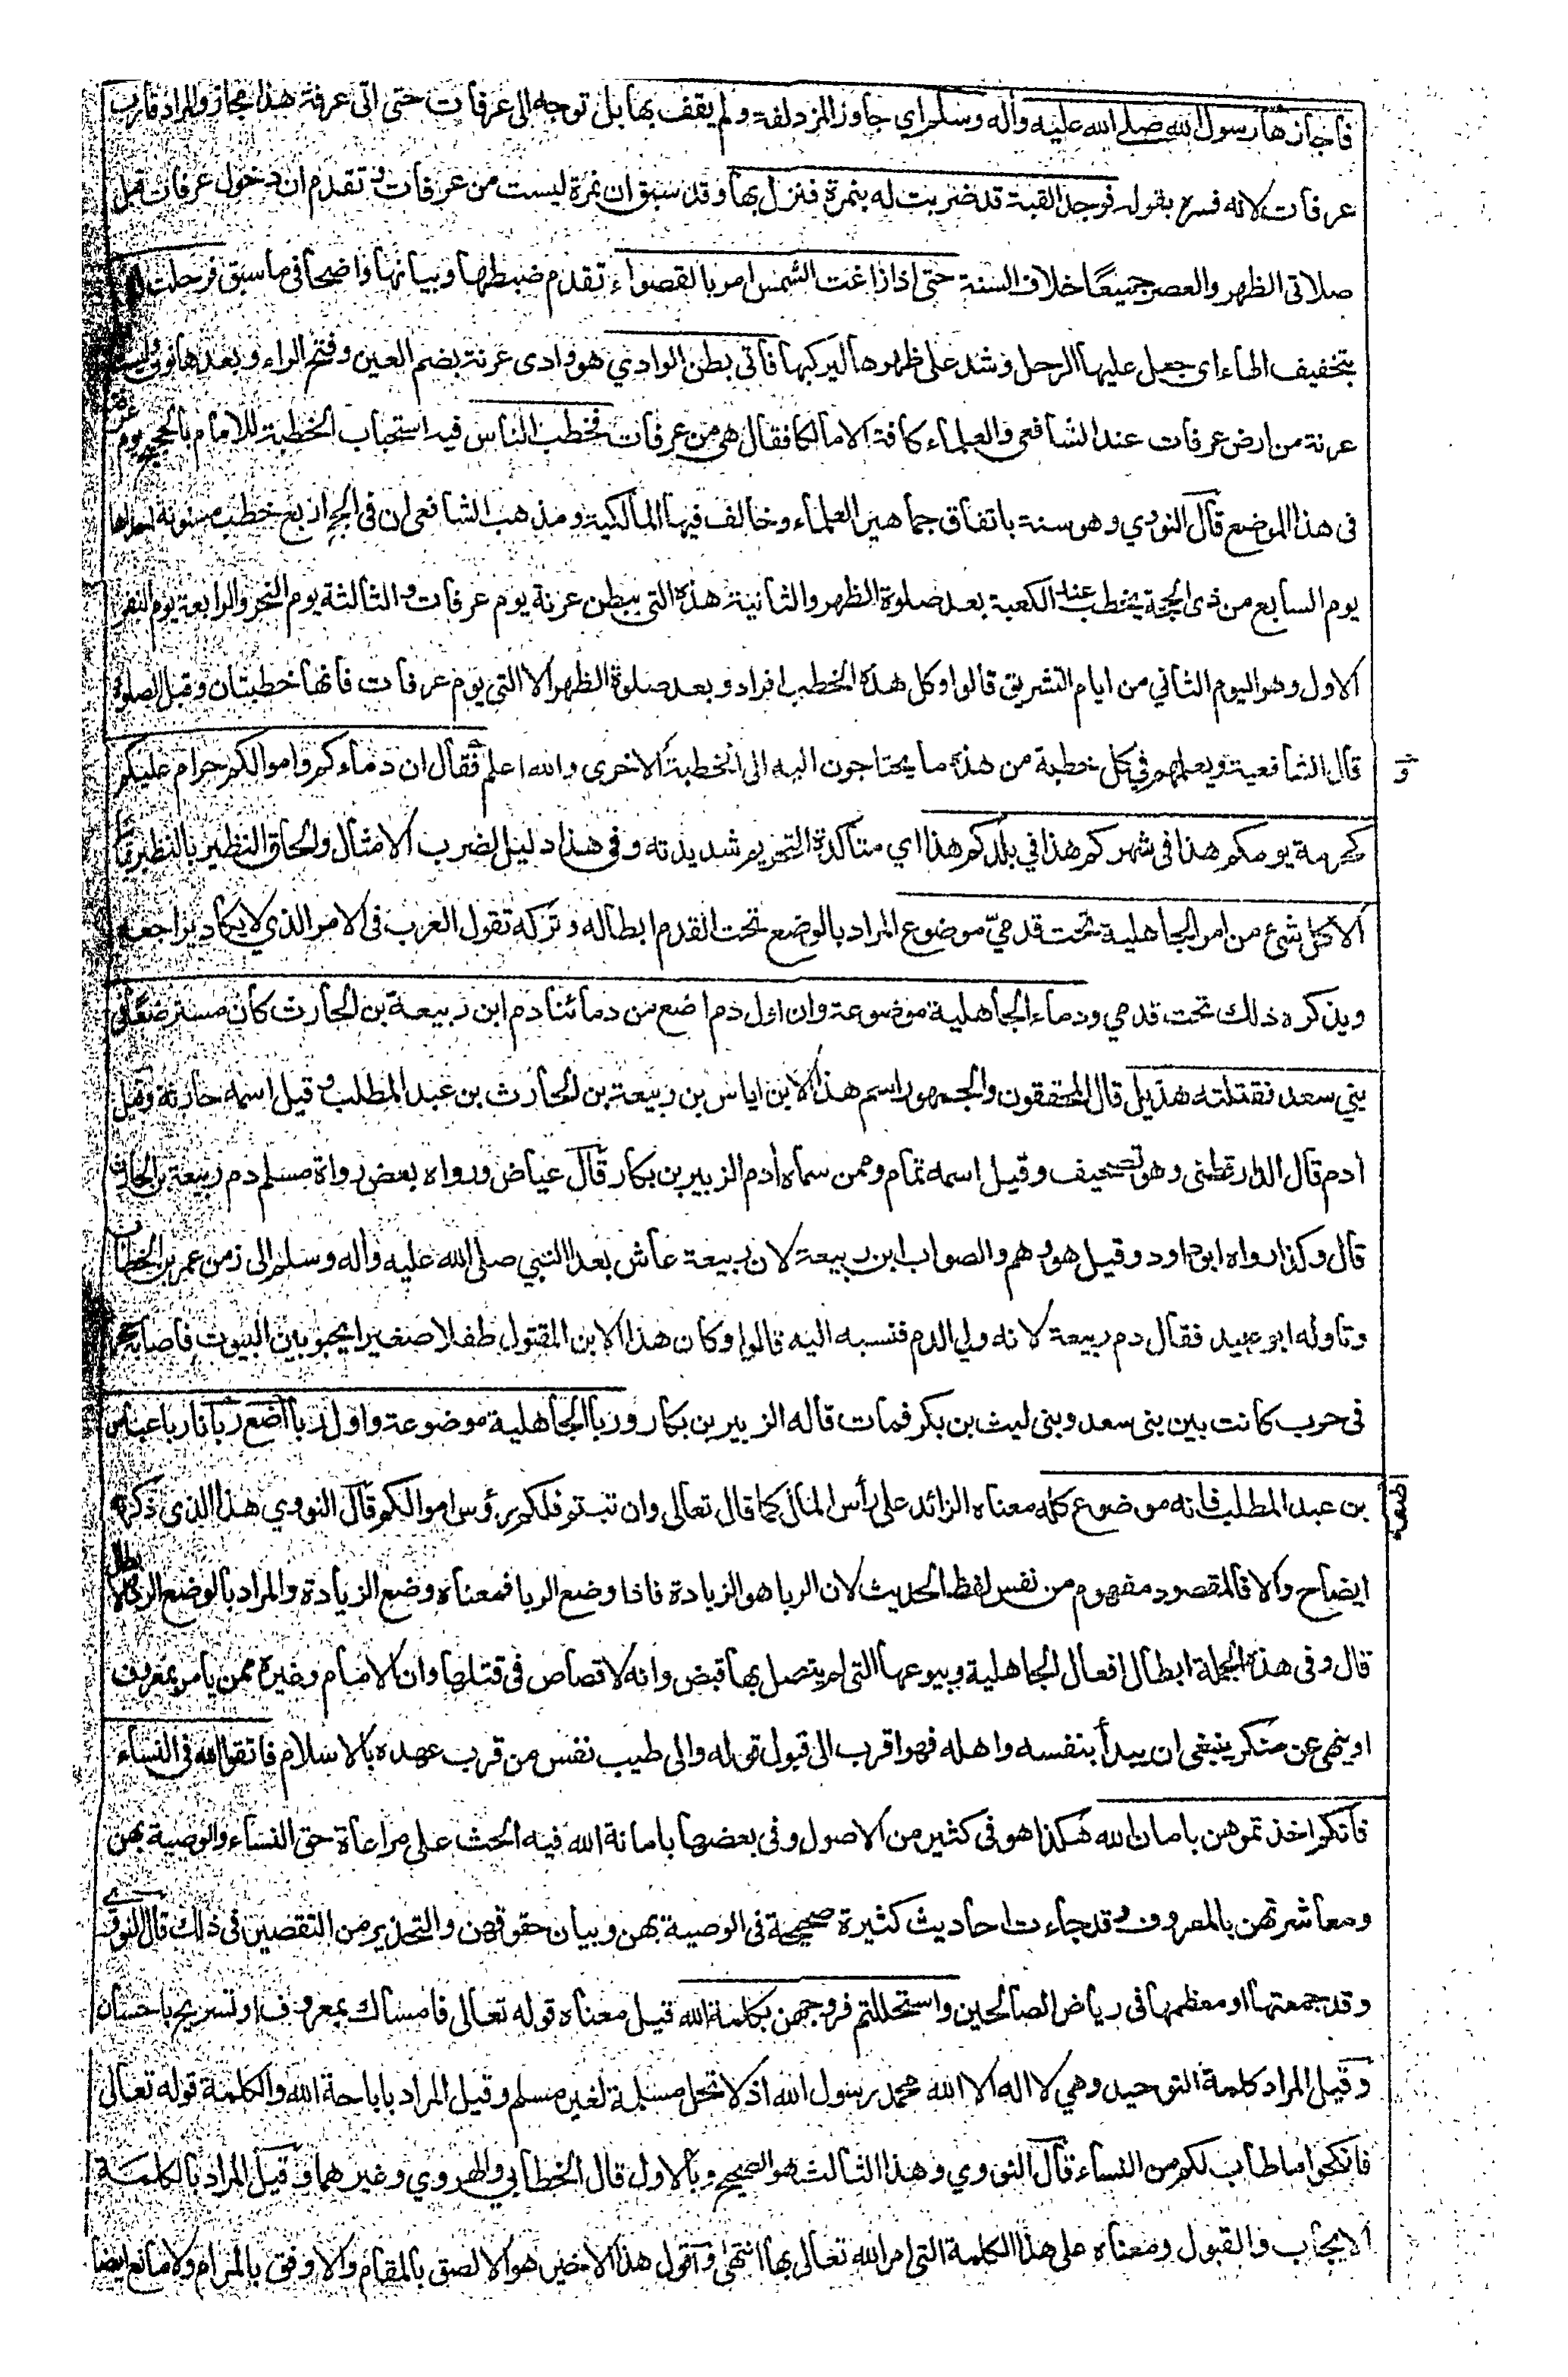 فأجازها رسول الله صلى الله عليه وأله وسلم اي جاوز المزدلفة ولم يقف بها بل توجه الى عرفات حتى اتى عرفة هذا مجاز والمراد قارب
عرفات لانه فسره بقوله فوجد القبة قد ضربت له بنمرة فنزل بها وقد سبق ان نمرة ليست من عرفات وتقدم ان دخول عرفات قبل
صلاتي الظهر والعصر جميعًا خلاف السنة حتى اذا زاغت الشمس امر بالقصواء تقدم ضبطها وبيانها واضحا في ما سبق فرحلت
بتخفيف الحاء اي جعل عليها الرحل وشد على ظهرها ليركبها فأتى بطن الوادي هو وادى عرنة بضم العين وفتح الراء وبعدها نون وليست
عرنة من ارض عرفات عند الشافعي والعلماء كافة الا مالكا فقال هي من عرفات فخطب الناس فيه استحباب الخطبة للامام بالحجيج يوم عرفة
في هذا الموضع قال النووي وهو سنة باتفاق جماهير العلماء وخالف فيها المالكية ومذهب الشافعي ان في الحج اربع خطب مسنونة احداها
يوم السابع من ذي الحجة يخطب عند الكعبة بعد صلوة الظهر والثانية هذه التي ببطن عرنة يوم عرفات والثالثة يوم النحر والرابعة يوم النفر
الاول وهو اليوم الثاني من ايام التشريق قالوا وكل هذه الخطب افراد وبعد صلوة الظهر الا التي يوم عرفات فانها خطبتان وقبل الصلوة
قال الشافعية ويعلمهم في كل خطبة من هذه ما يحتاجون اليه الى الخطبة الاخرى والله اعلم فقال ان دماءكم واموالكم حرام عليكم
كحرمة يومكم هذا في شهركم هذا في بلدكم هذا اي متأكدة التحريم شديدته وفي هذا دليل لضرب الامثال والحاق النظير بالنظير قياسا
الا كل شئ من امر الجاهلية تحت قدميّ موضوع المراد بالوضع تحت القدم ابطاله وتركه تقول العرب في الامر الذي لا يكاد يراجعه
ويذكره ذلك تحت قدمي ودماء الجاهلية موضوعة وان اول دم اضع من دمائنا دم ابن ربيعة بن الحارث كان مسترضعًا في
بني سعد فقتلته هذيل قال المحققون والجمهور اسم هذا الابن اياس بن ربيعة بن الحارث بن عبد المطلب وقيل اسمه حارثة وقيل
أدم قال الدارقطني وهو تصحيف وقيل اسمه تمام وممن سماه أدم الزبير بن بكار قال عياض ورواه بعض رواة مسلم دم ربيعة بن الحارث
قال وكذا رواه ابو داود وقيل هو وهم والصواب ابن ربيعة لان ربيعة عاش بعد النبي صلى الله عليه وأله وسلم الى زمن عمر بن الخطاب
وتاوله ابو عبيد فقال دم ربيعة لانه ولي الدم فنسبه اليه قالوا وكان هذا الابن المقتول طفلا صغيرا يحبو بين البيوت فاصابه حجر
في حرب كانت بين بني سعد وبني ليث بن بكر فمات قاله الزبير بن بكار وربا الجاهلية موضوعة واول ربا أضع ربانا ربا عباس
بن عبد المطلب فانه موضوع كله معناه الزائد على رأس المال كما قال تعالى وان تبتم فلكم رؤس اموالكم قال النووي هذا الذي ذكرته
ايضاح والا فالمقصود مفهوم من نفس لفظ الحديث لان الربا هو الزيادة فاذا وضع الربا فمعناه وضع الزيادة والمراد بالوضع الرد والابطال
قال وفي هذه الجملة ابطال افعال الجاهلية وبيوعها التي لم يتصل بها قبض وانه لا قصاص في قتلها وان الامام وغيره ممن يأمر بمعروف
او ينهى عن منكر ينبغي ان يبدأ بنفسه واهله فهو اقرب الى قبول قوله والى طيب نفس من قرب عهده بالاسلام فاتقوا الله في النساء
فانكم اخذتموهن بامان الله هكذا هو في كثير من الاصول وفي بعضها بامانة الله فيه الحث على مراعاة حق النساء والوصية بهن
ومعاشرتهن بالمعروف وقد جاءت احاديث كثيرة صحيحة في الوصية بهن وبيان حقوقهن والتحذير من التقصير في ذلك قال النووي
وقد جمعتها او معظمها في رياض الصالحين واستحللتم فروجهن بكلمة الله قيل معناه قوله تعالى فامساك بمعروف او تسريح باحسان
وقيل المراد كلمة التوحيد وهي لا اله الا الله محمد رسول الله اذ لا تحل مسلمة لغير مسلم وقيل المراد باباحة الله والكلمة قوله تعالى
فانكحوا ما طاب لكم من النساء قال النووي وهذا الثالث هو الصحيح وبالاول قال الخطابي والهروي وغيرهما وقيل المراد بالكلمة
الايجاب والقبول ومعناه على هذا الكلمة التي امر الله تعالى بها انتهى وأقول هذا الاخير هو الالصق بالمقام والاوفق بالمرام ولا مانع ايضا